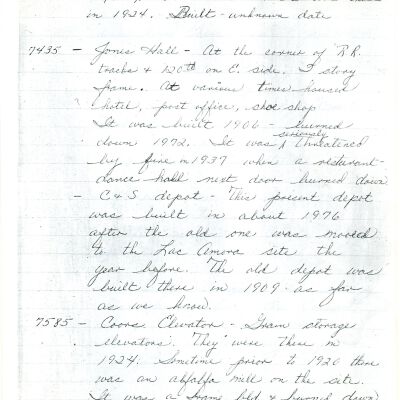 in 1924. Built - unknown date
7435 - Jones Hall - At the corner of R.R.
tracks & 120th on E. side. 2 story
frame. At various times housed
hotel, post office, shoe shop
It was built 1906 - burned
down 1972. It was seriously threatened
by fire in 1937 when a restaurant-
dance hall next door burned down
- C & S depot - This present depot
was built in about 1976
after the old one was mooved
to the Lac Amora site the
year before. The old depot was
built there in 1909 as far
as we know.
7585 - Coors Elevator - Grain storage
elevators. They were there in
1924. Sometime prior to 1920 there
was an alfalfa mill on the site.
It was a frame bld & burned down